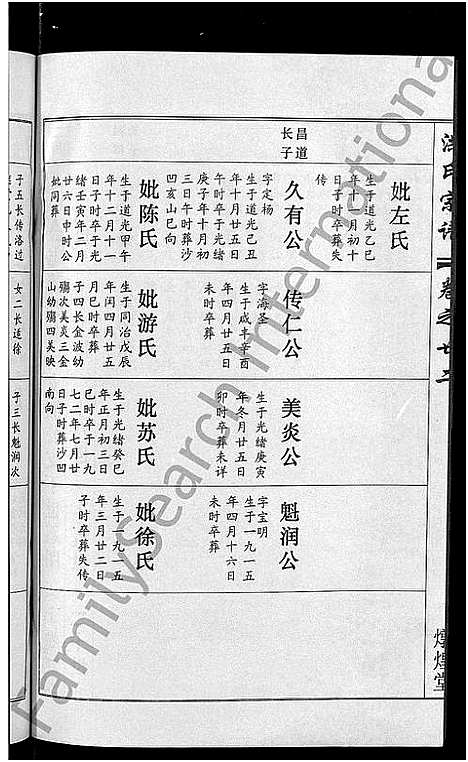 氏宗谱
卷之廿二
燉煌堂
昌道
长子
妣左氏
生于道光乙巳
年十月初十
日子时卒葬失
传
久有公
字定杨
生于道光己丑
年十月廿五日
午时卒于光绪
庚子年十月初
三日午时葬沙
凹亥山巳向
妣陈氏
生于道光甲午
年十二月十一
日子时卒于光
绪壬寅年二月
廿六日申时公
妣同葬
传仁公
字海圣
生于咸丰辛酉
年四月廿五日
未时卒葬
妣游氏
生于同治戊辰
年闰四月廿五
月巳时卒葬
子四长金波幼
殇次美炎三金
山幼殇四美映
美炎公
生于光绪庚寅
年冬月廿五日
卯时卒葬未详
妣苏氏
生于光绪癸巳
年正月初三日
巳时卒于一九
七二年七月廿
日子时葬沙凹
南向
魁润公
字宝明
生于一九一五
年四月十六日
未时卒葬
妣徐氏
生于一九一五
年三月廿二日
子时卒葬失传
子五长传洛过
女二长适徐
子三长魁润次
FamilySearch International